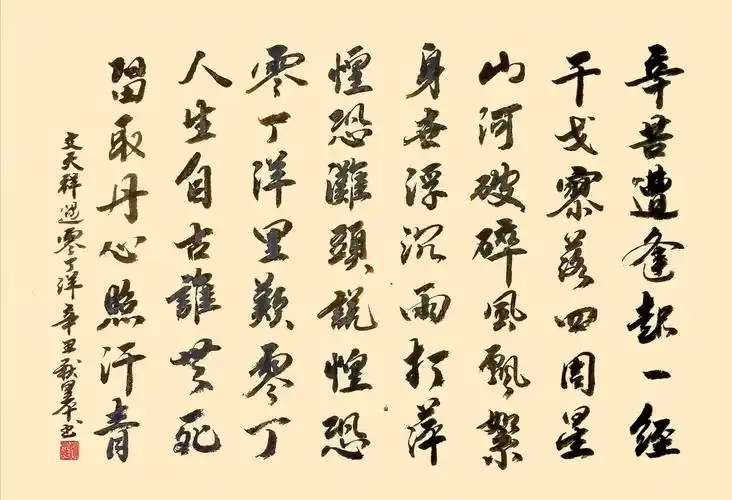 辛苦遭逢起一經
干戈寥落四周星
山河破碎風飄絮
身世浮沉雨打萍
惶恐灘頭說惶恐
零丁洋里歎零丁
人生自古誰無死
留取丹心照汗青
文天祥過零丁洋 辛丑秋 书